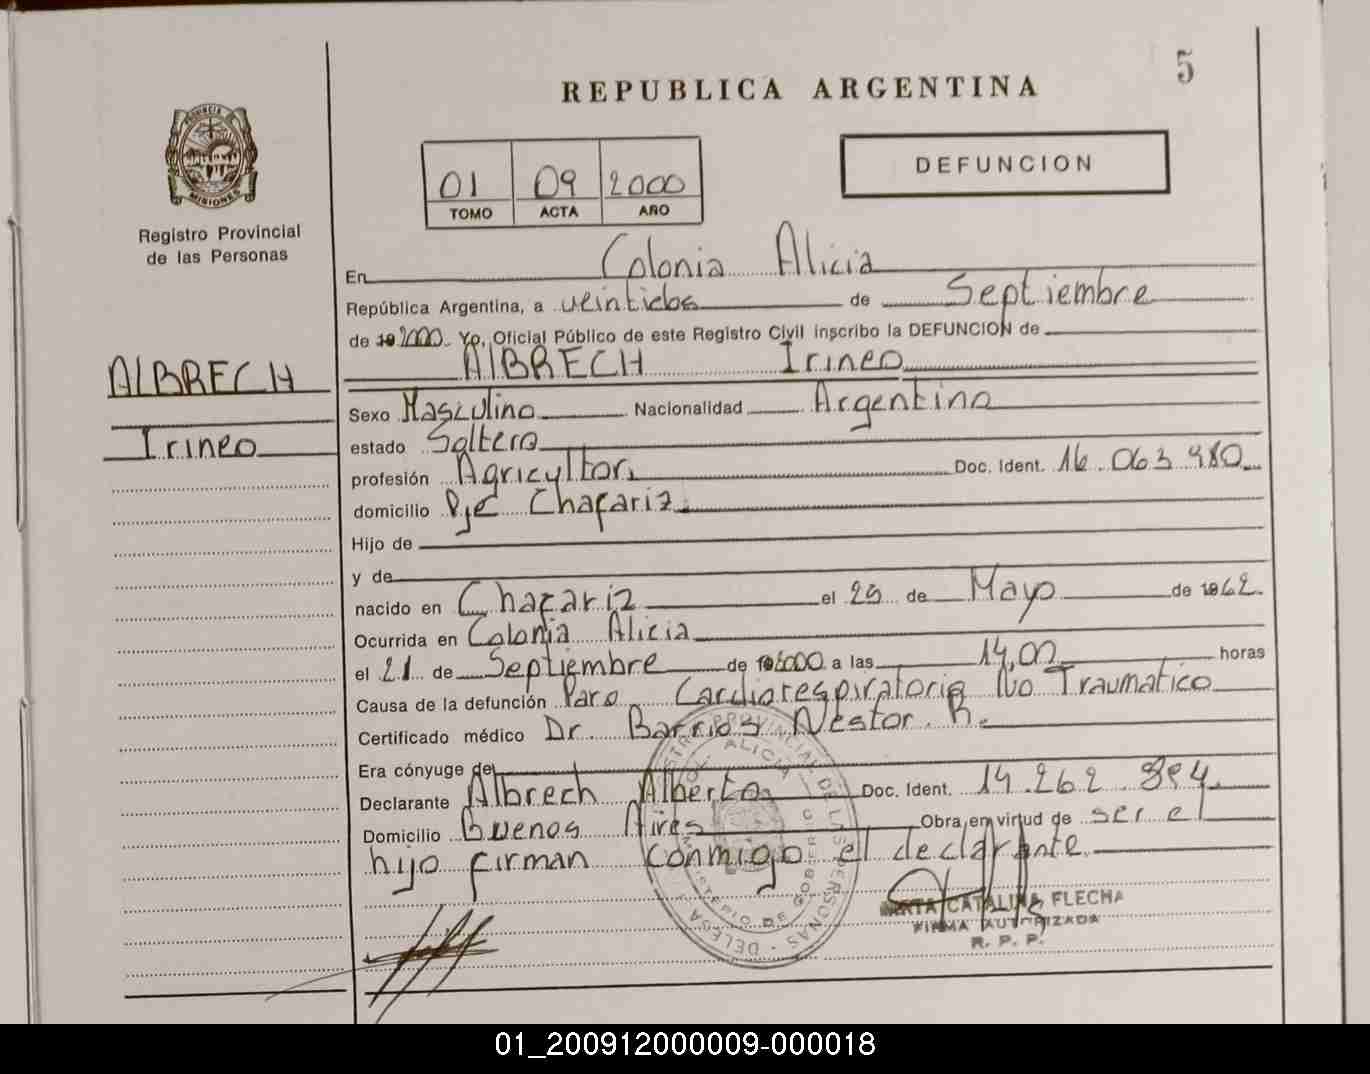 5
REPUBLICA ARGENTINA
PROVINCIA DE MISIONES
Registro Provincial
de las Personas
01 09 2000
TOMO ACTA AÑO
DEFUNCION
En Colonia Alicia
República Argentina, a veintidos de Septiembre
de 2000. Yo, Oficial Público de este Registro Civil inscribo la DEFUNCION de
ALBRECH Irineo
ALBRECH
Irineo
Sexo Masculino Nacionalidad Argentina
estado Soltero
profesión Agricultor Doc. Ident. 16.063.980
domicilio Pje Chafariz
Hijo de
y de
nacido en Chafariz el 29 de Mayo de 1962
Ocurrida en Colonia Alicia
el 21 de Septiembre de 2000 a las 14,00 horas
Causa de la defunción Paro Cardiorespiratorio No Traumatico
Certificado médico Dr. Barrios Nestor R.
Era cónyuge de
Declarante Albrech Alberto Doc. Ident. 14.262.894
Domicilio Buenos Aires Obra en virtud de ser el
hijo firman conmigo el declarante.
MARTA CATALINA FLECHA
FIRMA AUTORIZADA
R. P. P.
01_200912000009-000018